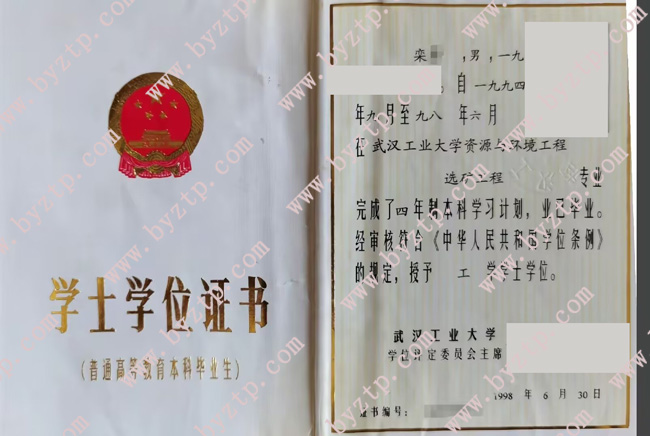 学士学位证书
（普通高等教育本科毕业生）
栾 ，男，一九
。自一九九四
年九月至九八 年六月
在武汉工业大学资源与环境工程
选矿工程 专业
完成了四年制本科学习计划，业已毕业。
经审核符合《中华人民共和国学位条例》
的规定，授予 工 学学士学位。
武汉工业大学
学位评定委员会主席
1998 年 6 月 30 日
证书编号：
www.byztp.com